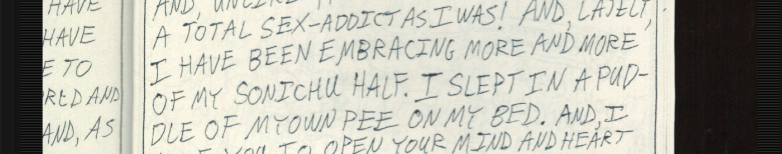 HAVE
HAVE
E TO
AND
AND, AS
AND,
A TOTAL SEX-ADDICT AS I WAS! AND, LATELY,
I HAVE BEEN EMBRACING MORE AND MORE
OF MY SONICHU HALF. I SLEPT IN A PUD-
DLE OF MY OWN PEE ON MY BED. AND, I
YOU TO OPEN YOUR MIND AND HEART